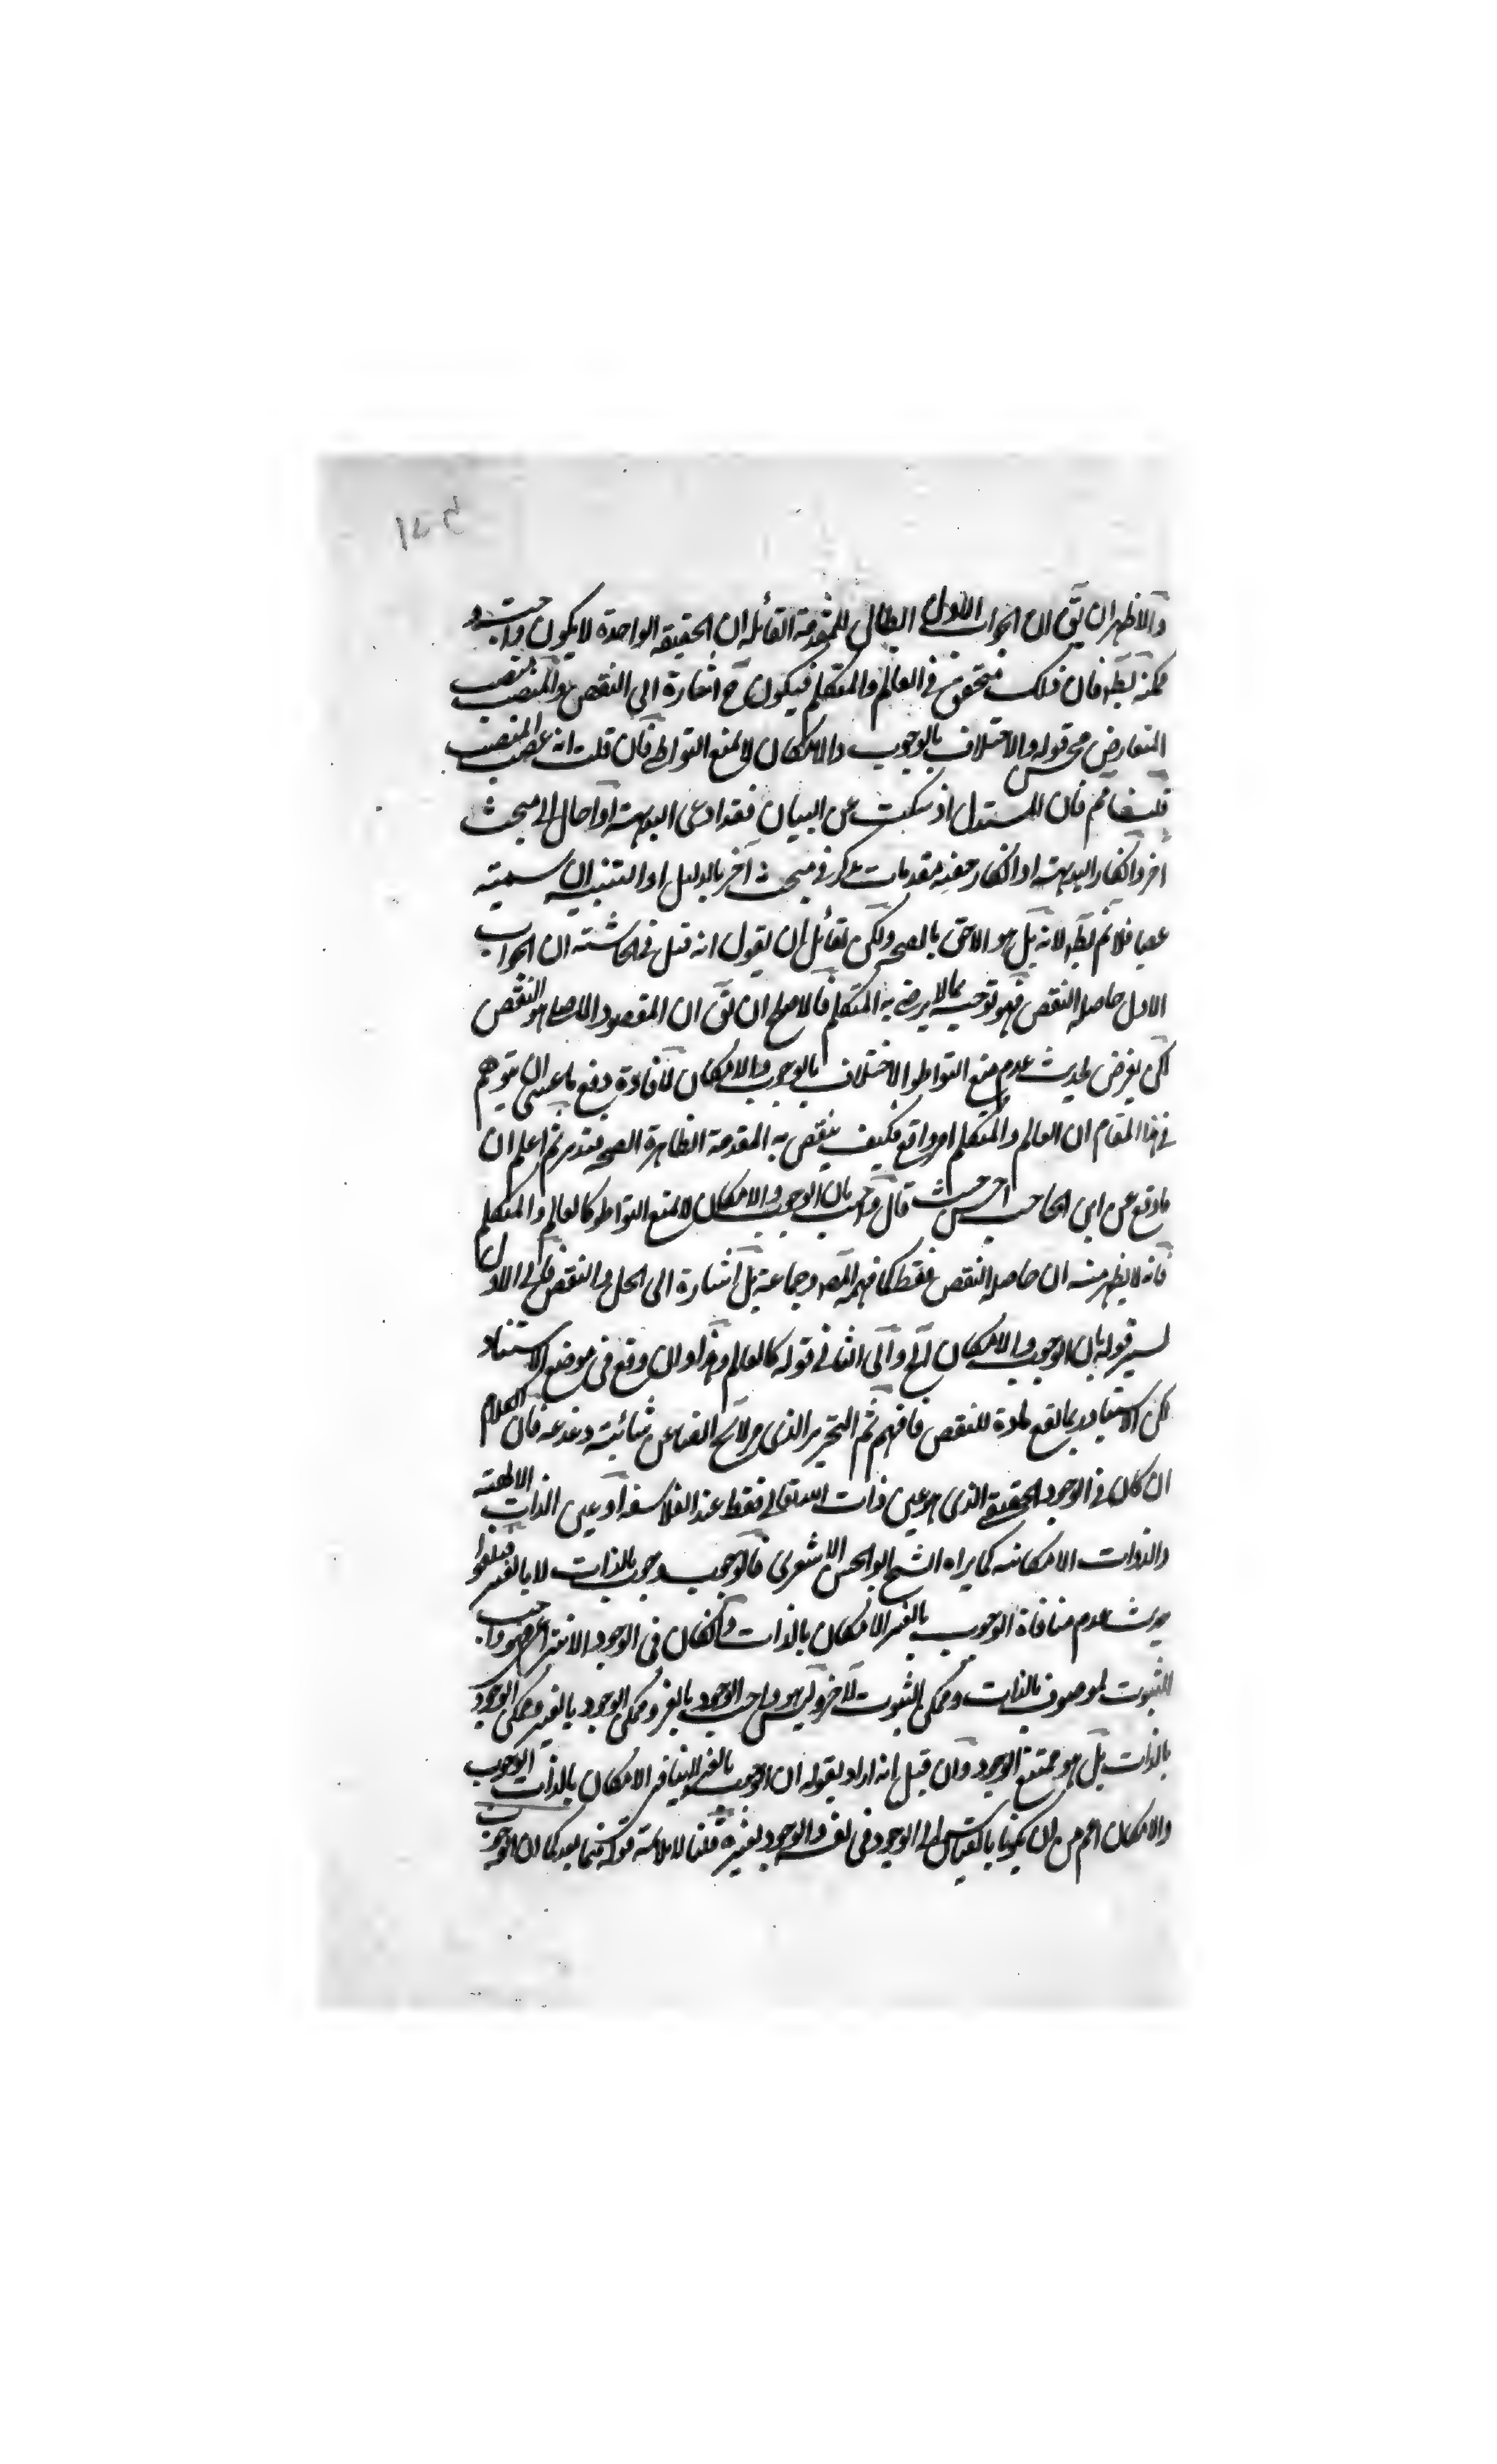 والاظهر ان يق ان الجواب الاول ابطال للمقدمة القائلة ان الحقيقة الواحدة لا يكون واجبة و
ممكنة بط فان ذلك متحقق في العالم والمتكلم فيكون ح اشارة الى النقض والمنصب منصب
المعارض مح قوله والاختلاف بالوجوب والامكان لا يمنع التواطي فان قلت انه غصب المنصب
قلت فان المستدل اذ سكت عن البيان فقد ادعى البديهة او احال الى مبحث
اخر وانكار البديهة او انكار مقدمات في مبحث آخر بالدليل او التنبيه ان سميته
غصبا فلا ثم بط لانه بل هو الاحق بالصحة ولكن لقائل ان يقول انه قيل في الحاشية ان الجواب
الاول حاصله النقض فهو توجيه بما لا يرضى به المتكلم فالاصلح ان يق ان المقصود الاصلي هو النقض
لكن يفرض لحديث عدم منع التواطو الاختلاف بالوجوب والامكان لافادة دفع ما عسى ان يتوهم
في هذا المقام ان العالم والمتكلم امر واقع فكيف ينقض به المقدمة الظاهرة الصحة فتدبر ثم اعلم ان
ما وقع عن ابن الحاجب احسن حيث قال واجيب بان الوجوب والامكان لا يمنع التواطو كالعالم والمتكلم
فانه لا يظهر منه ان حاصله النقض فقط كما فهمه المص وجماعة بل اشارة الى الحل والنقض فالى الاول
يسير قوله بان الوجوب والامكان الخ والى الثاني قوله كالعالم وهذا وان وقع في موضع الاستناد
لكن الاستناد بما يقع مادة للنقض فافهم ثم التحرير الذي مر لا يخ ايضا عن شائبة دغدغة فان الكلام
ان كان في الوجود الحقيقي الذي هو عين ذات الله تعالى فقط عند الفلاسفة او عين الذات الالهية
والذوات الامكانية كما يراه الشيخ ابو الحسن الاشعري فالوجوب وجوب بالذات لا بالغير فيلغوا
حديث عدم منافاة الوجوب بالغير الامكان بالذات وان كان في الوجود الانتزاعي فهو واجب
الثبوت لموصوف بالذات وممكن الثبوت لآخر وليس هو واجب الوجود بالغير وممكن الوجود بالغير وممكن الوجود
بالذات بل هو ممتنع الوجود وان قيل انه اراد بقوله ان الوجوب بالغير لا ينافي الامكان بالذات الوجوب
والامكان اعم من ان يكونا بالقياس الى الوجود في نفسه والوجود لغيره قلنا لا يلائمه قوله فيما بعد كما ان الوجوب